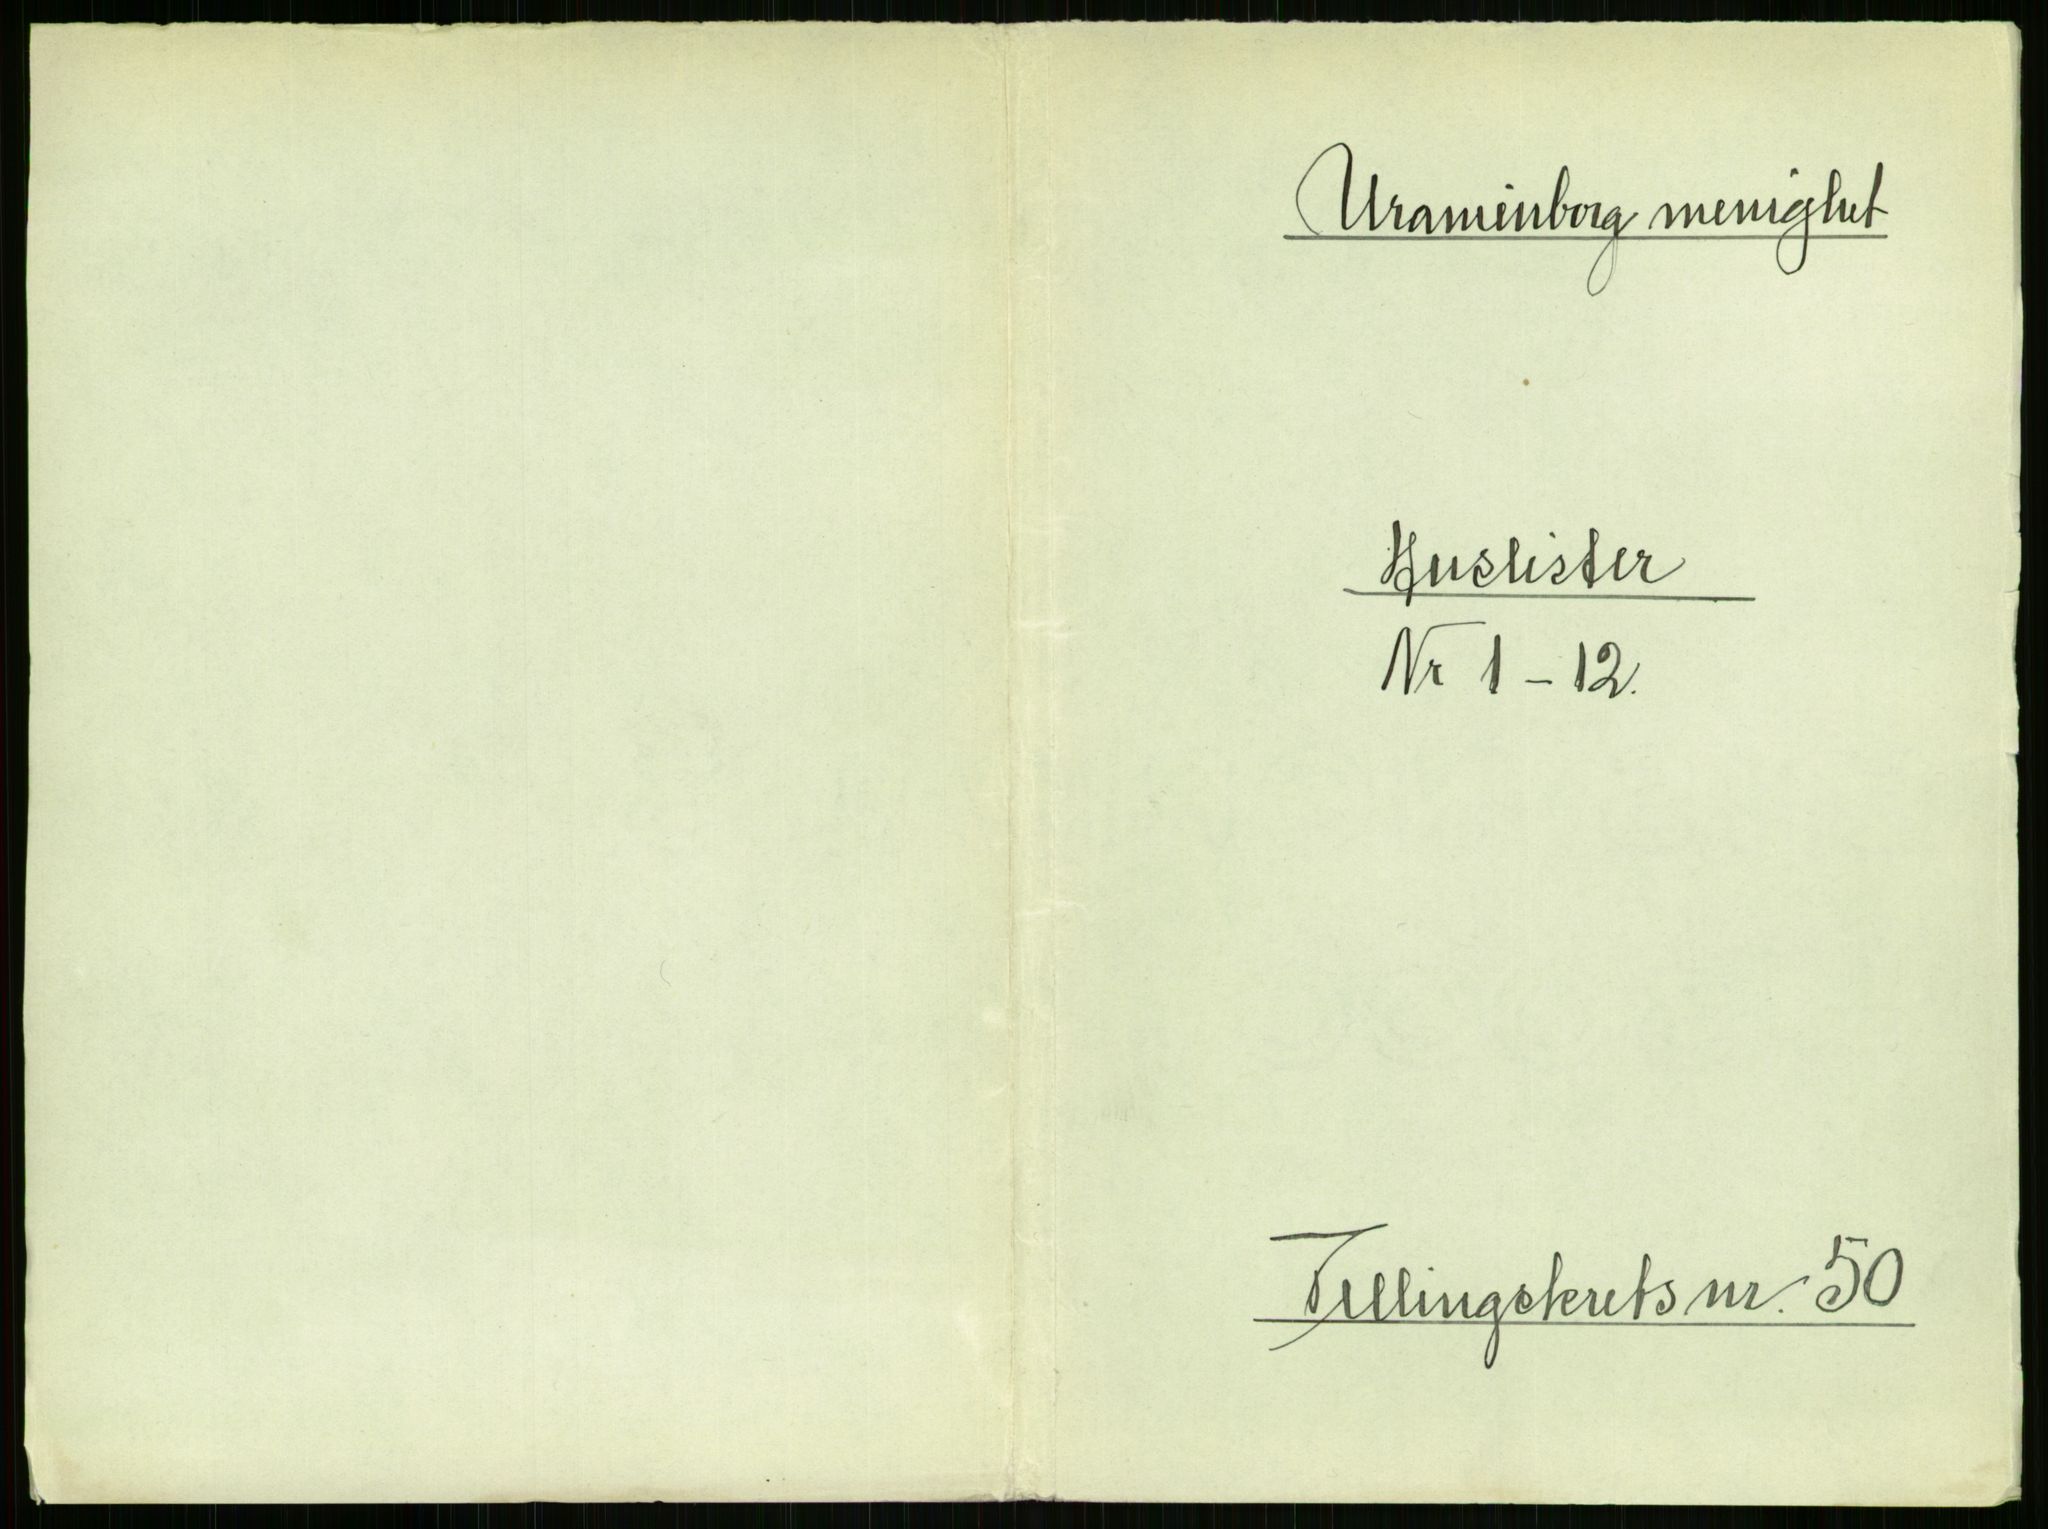 Uranienborg menighet
Huslister
Nr 1 - 12.
Tellingskrets nr. 50